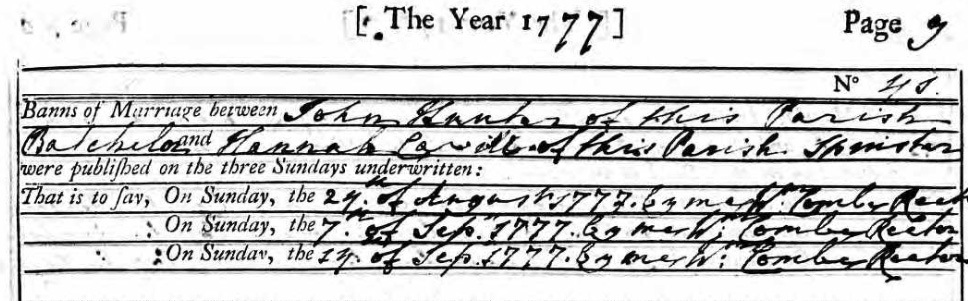 [ The Year 1777 ] Page 9
No
Banns of Marriage between John Hunter of this Parish
Batchelor and Hannah of this Parish Spinster
were publiſhed on the three Sundays underwritten:
That is to ſay, On Sunday, the 24th of August 1777. by me Wm: Comber Rector
On Sunday, the 7th of Sep. 1777. by me Wm: Comber Rector
On Sunday, the 14 of Sep. 1777. by me Wm: Comber Rector